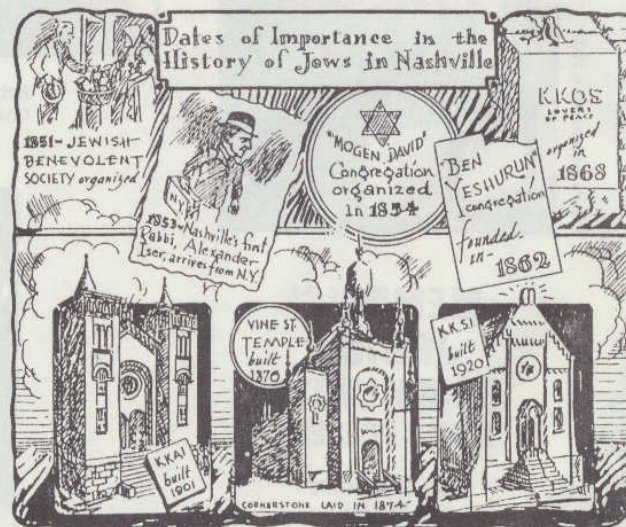 Dates of Importance in the
History of Jews in Nashville
1851 - JEWISH
BENEVOLENT
SOCIETY organized
N.Y.
1853 - Nashville's first
Rabbi, Alexander
Iser, arrives from N.Y.
"MOGEN DAVID"
Congregation
organized
in 1854
"BEN
YESHURUN"
congregation
founded
in -
1862
KKOS
LOVERS
OF PEACE
organized
in
1868
K.K.A.I.
built
1901
VINE ST.
TEMPLE
built
1876
CORNERSTONE LAID IN 1874
K.K.S.I.
built
1920